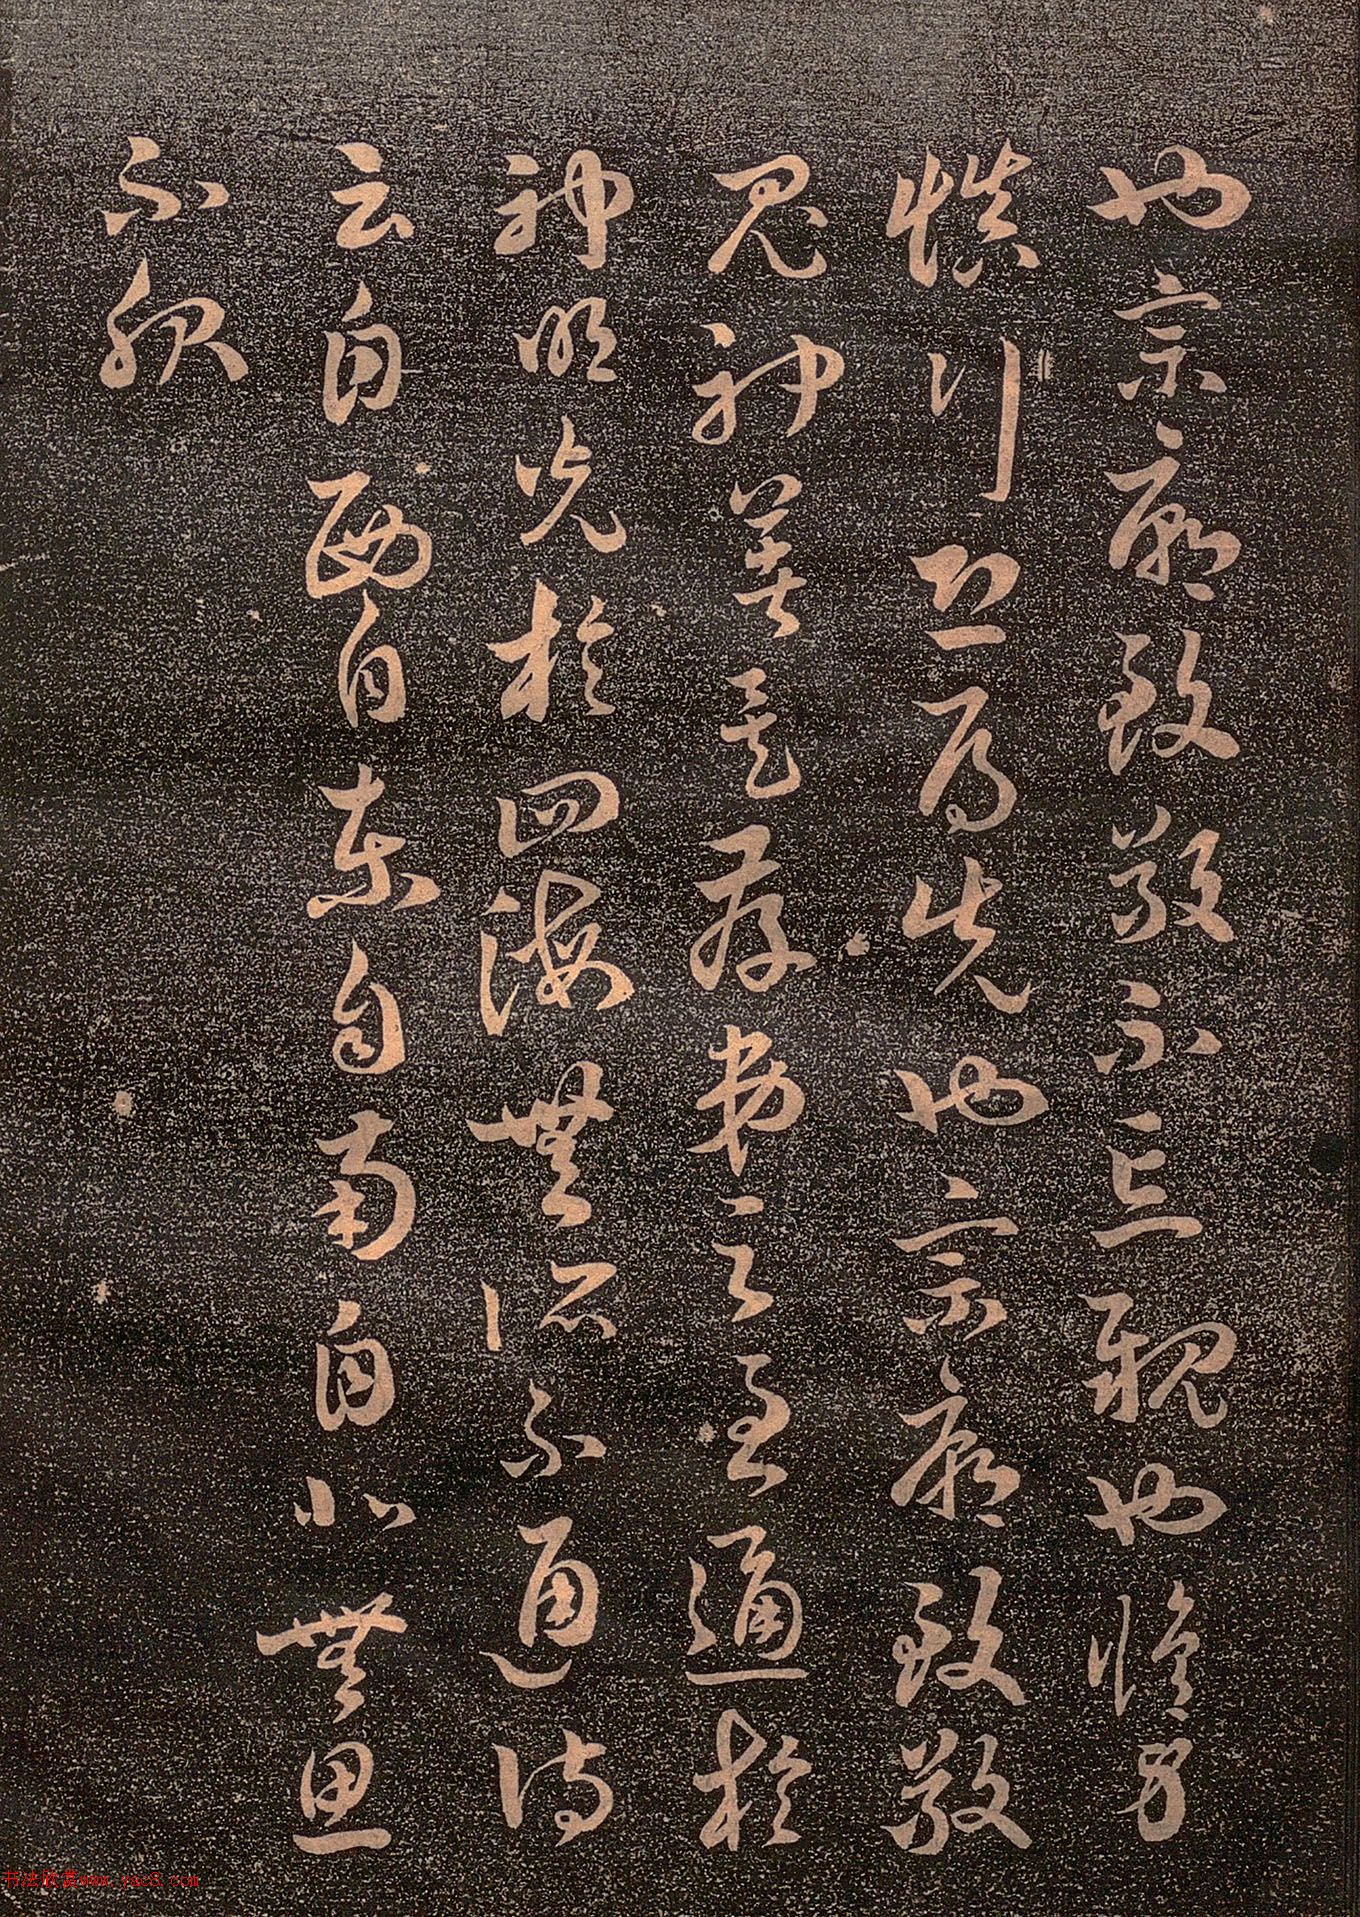 也宗廟致敬不忘親也脩身
慎行恐辱先也宗廟致敬
鬼神著矣孝弟之至通於
神明光於四海無所不通詩
云自西自東自南自北無思
不服
书法欣赏www.yac8.com